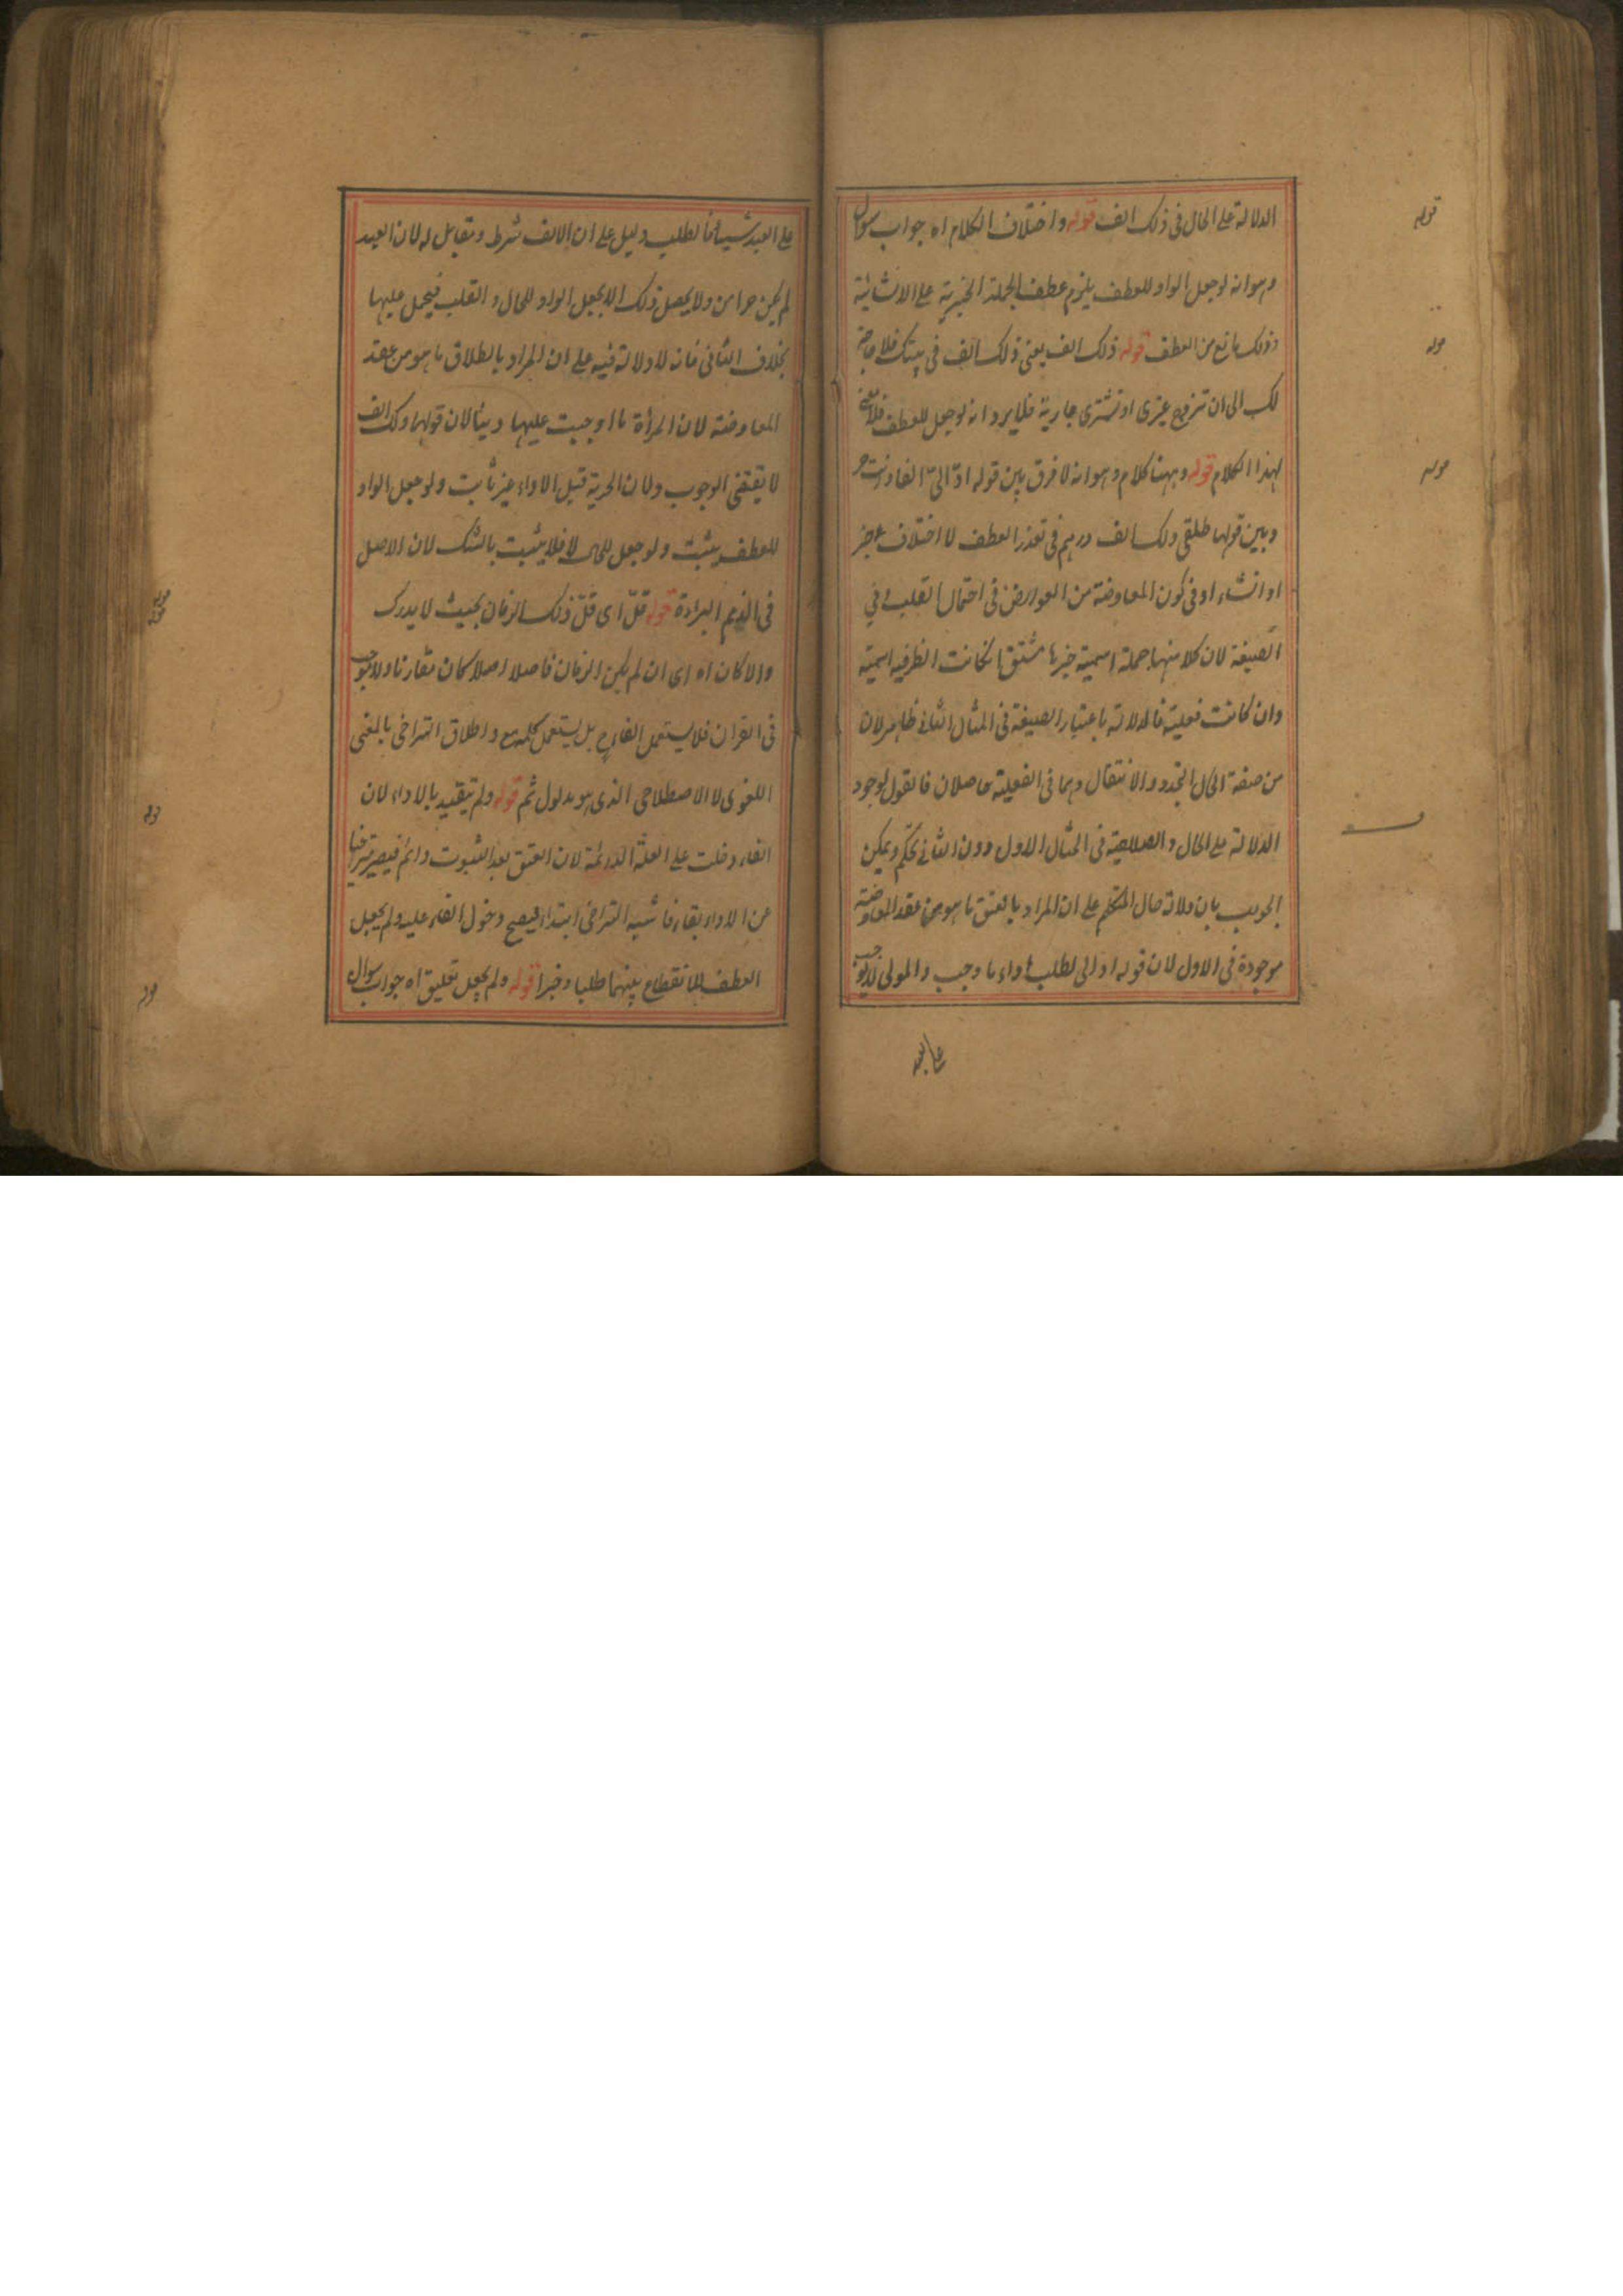 الدلالة على الحال فى ذلك الف قوله واختلاف الكلام اه جواب سوال
وهو انه لو جعل الواو للعطف يلزم عطف الجملة الخبرية على الانشائية
وذلك مانع من العطف قوله ذلك الف يعنى ذلك الف فى بيتك فلا حاجة
لك الى ان تتزوج غيرى او تشترى جارية فلا يرد انه لو جعل للعطف فلا معنى
لهذا الكلام قوله وههنا كلام وهو انه لا فرق بين قوله ادّ الىّ الفا وانت حر
وبين قولها طلقنى ولك الف درهم فى تعذر العطف لاختلاف خبر
او انشاء او فى كون المعاوضة من العوارض فى احتمال القلب وفي
الصيغة لان كلا منهما جملة اسمية خبرها مشتق ان كانت الظرفيه اسمية
وان كانت فعلية فالدلالة باعتبار الصيغة فى المثال الثانى ظاهر لان
من صفة الحال التجدد والانتقال وهما فى الفعلية حاصلان فالقول بوجود
الدلالة على الحال والصلاحية فى المثال الاول دون الثانى تحكّم ويمكن
الجواب بان دلالة حال المتكلم على ان المراد بالعتق ما هو من عقد المعاوضة
موجودة فى الاول لان قوله اد الى لطلب اداء ما وجب والمولى لا يوجب
على العبد
قوله
قوله
قوله
على العبد شيئا فالطلب دليل على ان الالف شرط ومقابل له لان العبد
لم يكن حرا من ولا يحصل ذلك الا بجعل الواو للحال والقلب فيحمل عليها
بخلاف الثانى فانه لا دلالة فيه على ان المراد بالطلاق ما هو من عقد
المعاوضة لان المرأة ما اوجبت عليها دينا لان قولها ولك الف
لا يقتضى الوجوب ولان الحرية قبل الاداء غير ثابت ولو جعل الواو
للعطف يثبت ولو جعل للحال لا فلا يثبت بالشك لان الاصل
فى الذمم البراءة قوله قلّ اى قلّ ذلك الزمان بحيث لا يدرك
والا كان اه اى ان لم يكن الزمان فاصلا اصلا كان مقارنا ولا يوجب
فى القران فلا يستعمل الفاء بل يستعمل كلمة مع واطلاق التراخى بالمعنى
اللغوى لا الاصطلاحى الذى هو مدلول ثم قوله ولم يتقيد بالاداء لان
الفاء دخلت على العلة الدائمة لان العتق بعد الثبوت دائم فيصير متراخيا
عن الاداء بقاء فاشبه التراخى ابتداء فيصح دخول الفاء عليه ولم يجعل
العطف للانقطاع بينهما طلبا وخبرا قوله ولم يجعل تعليق اه جواب سوال
قوله
قوله